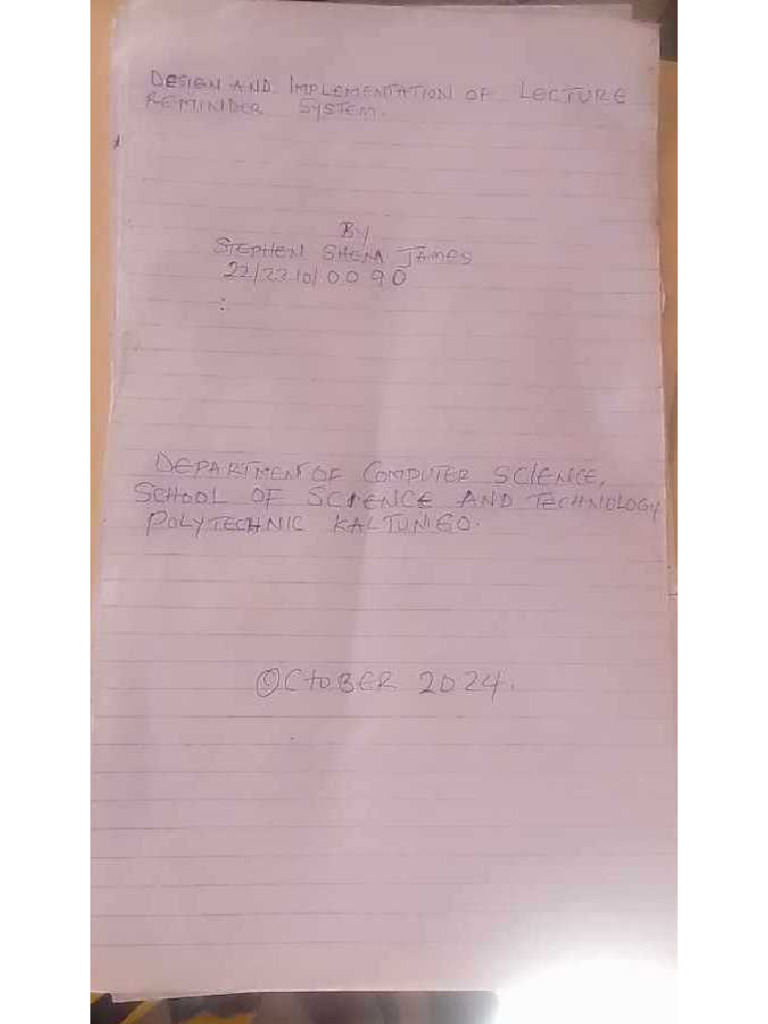 DESIGN AND IMPLEMENTATION OF LECTURE
REMINDER SYSTEM.
By
STEPHEN SHEM JAMES
22/2210/0090
:
DEPARTMENT OF COMPUTER SCIENCE,
SCHOOL OF SCIENCE AND TECHNOLOGY
POLYTECHNIC KALTUNGO.
OCTOBER 2024.